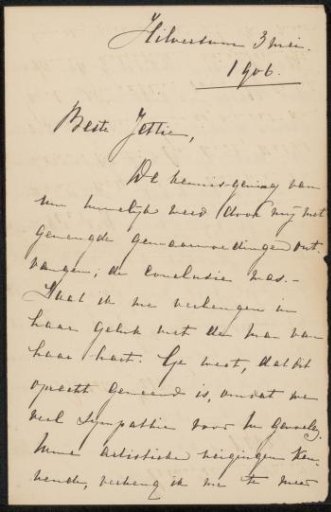 Hilversum 3 mei
1906.
Beste Jettie,
De kennisgeving van
uw huwelijk werd door mij met
gemengde gemoedsaandoeningen ont,
vangen; de conclusie was. -
Laat ik me verheugen in
haar geluk met de man van
haar hart. Ge weet, dat dit
oprecht gemeend is, omdat me
veel sympathie voor
Uwe artistieke neigingen ken,
nende, verheug ik me te meer